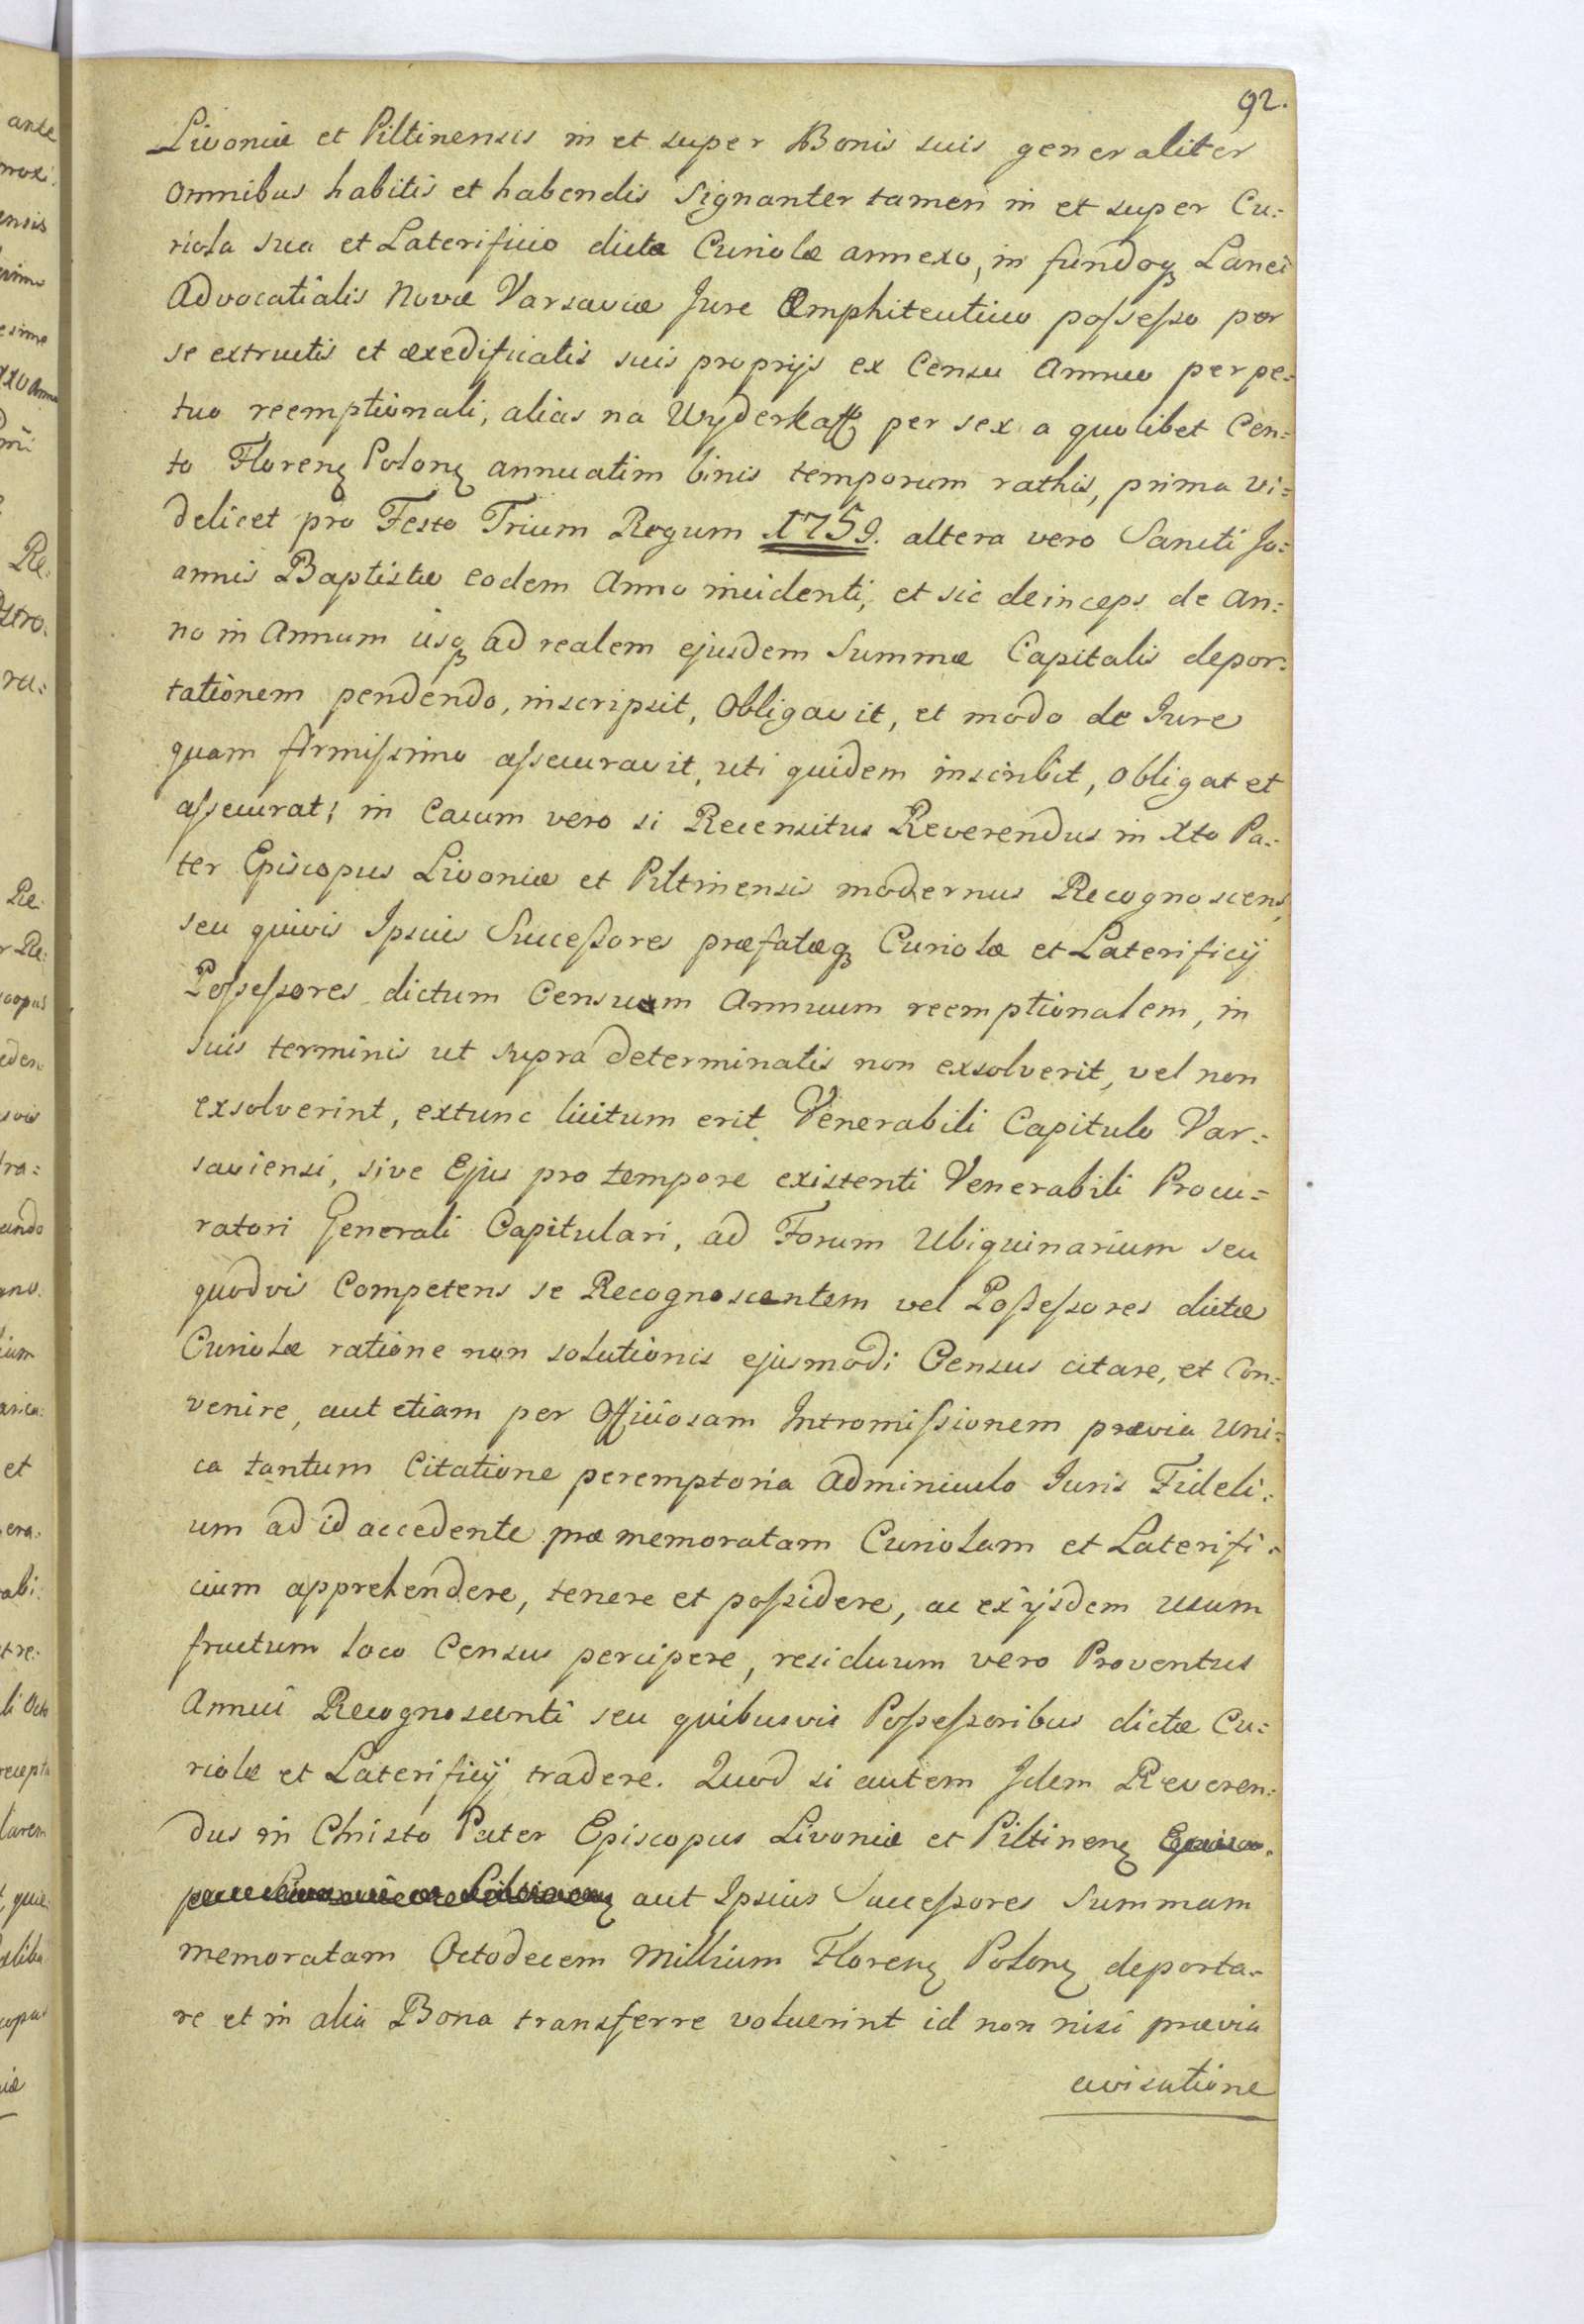 92.
Livoniæ et Piltinensis in et super Bonis suis generaliter
omnibus habitis et habendis signanter tamen in et super Cu:
riola sua et Laterificio dictæ Curiolæ annexo, in fundoq₃ Lanei
Advocatialis Novæ Varsaviæ Jure Emphiteutico possesso per
se extructis et exedificatis suis proprijs ex Censu Annuo perpe:
tuo reemptionali, alias na Wyderkaff per sex a quolibet Cen:
to Floren Polon annuatim binis temporum rathis, prima vi:
delicet pro Festo Trium Regum 1759. altera vero Sancti Jo:
annis Baptistæ eodem Anno incidenti, et sic deinceps de an:
no in Annum usq₃ ad realem ejusdem Summæ Capitalis depor:
tationem pendendo, inscripsit, Obligavit, et modo de Jure
quam firmissimo assecuravit, uti quidem inscribit, obligat et
assecurat; in Casum vero si Recensitus Reverendus in Xto Pa:
ter Episcopus Livoniæ et Piltinensis modernus Recognoscens,
seu quivis Ipsius Successores præfatæq₃ Curiolæ et Laterificij
Possessores dictum Censuum Annuum reemptionalem, in
suis terminis ut supra determinatis non exsolverit, vel non
exsolverint, extunc licitum erit Venerabili Capitulo Var:
saviensi, sive Ejus pro tempore existenti Venerabili Procu:
ratori Generali Capitulari, ad Forum Ubiquinarium seu
quodvis Competens se Recognoscentem vel Possessores dictæ
Curiolæ ratione non solutionis ejusmodi Census citare, et Con:
venire, aut etiam per Officiosam Intromissionem prævia uni:
ca tantum Citatione peremptoria adminiculo Juris Fideli:
um ad id accedente præmemoratam Curiolam et Laterifi:
cium apprehendere, tenere et possidere, ac ex ijsdem usum
fructum loco Census percipere, residuum vero Proventus
Annui Recognoscenti seu quibusvis Possessoribus dictæ Cu:
riolæ et Laterificij tradere. Quod si autem Idem Reveren:
dus in Christo Pater Episcopus Livoniæ et Piltinen
aut Ipsius Successores Summam
memoratam Octodecem Millium Floren Polon deporta:
re et in alia Bona transferre voluerint id non nisi prævia
avisatione